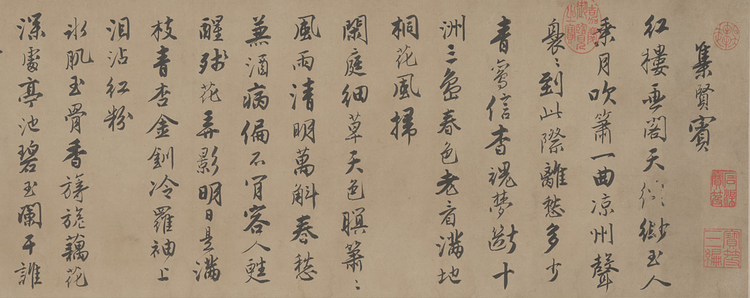 集賢賓
紅樓閣天縹緲玉人
乘月吹簫一曲凉州聲
裊〻到此際離愁多少
青鸞信杳魂夢斷十
洲三島春色老看滿地
桐花風掃
閑庭細草天色暝簫〻
風雨清明萬斛春愁
兼酒病偏不肎容人甦
醒殘花弄影明日是滿
枝青杏金釧冷羅袖上
泪沾紅粉
冰肌玉骨香旖旎藕花
深處亭池碧玉闌干誰